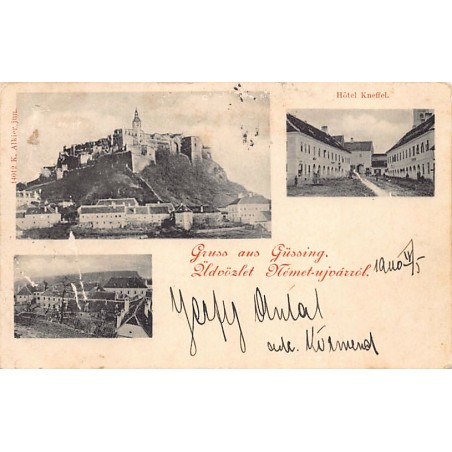 Hôtel Kneffel.
1012 K. Alkier jun.
Gruss aus Güssing.
Üdvözlet Német-ujvárról.
1900 IV/5
Antal
Körmend